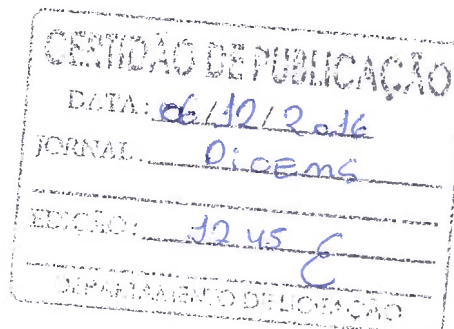 CERTIDÃO DE PUBLICAÇÃO
DATA: 06/12/2016
JORNAL: DiOEMS
EDIÇÃO: 1245
DEPARTAMENTO DE LICITAÇÃO